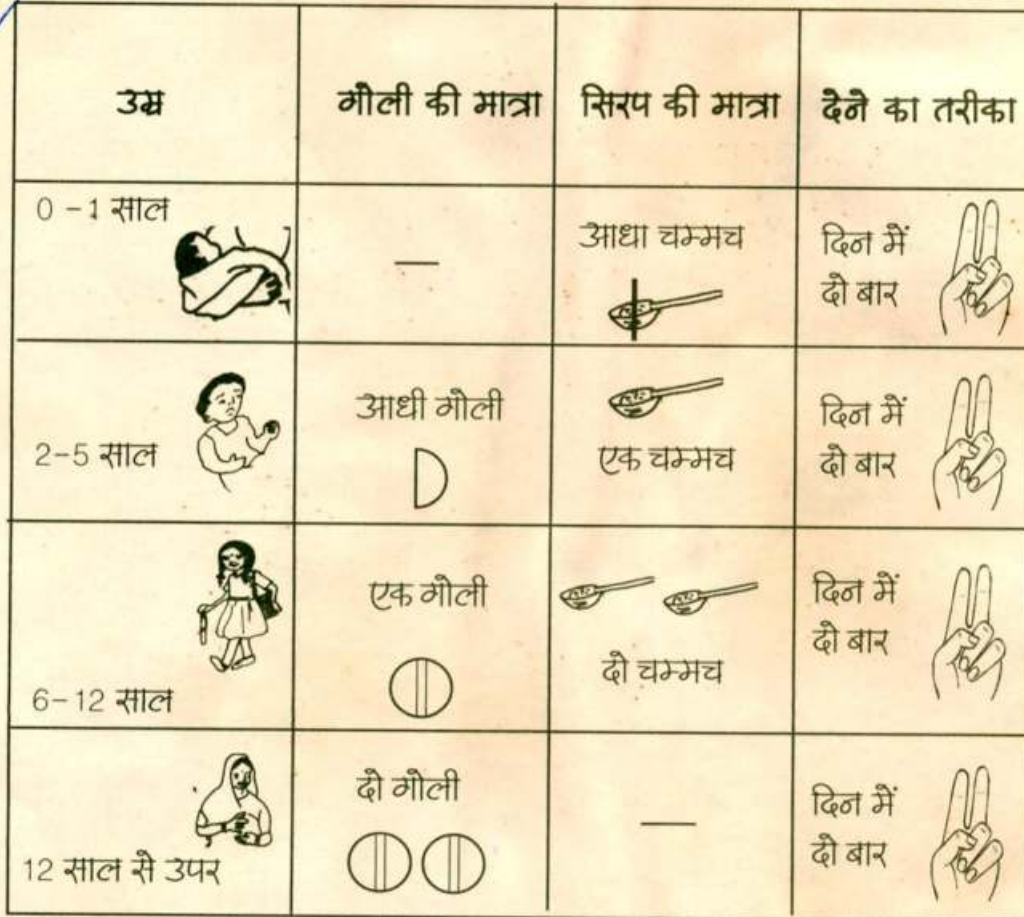 उम्र
गोली की मात्रा
सिरप की मात्रा
देने का तरीका
0 -1 साल
—
आधा चम्मच
दिन में
दो बार
2-5 साल
आधी गोली
एक चम्मच
दिन में
दो बार
6-12 साल
एक गोली
दो चम्मच
दिन में
दो बार
12 साल से उपर
दो गोली
—
दिन में
दो बार